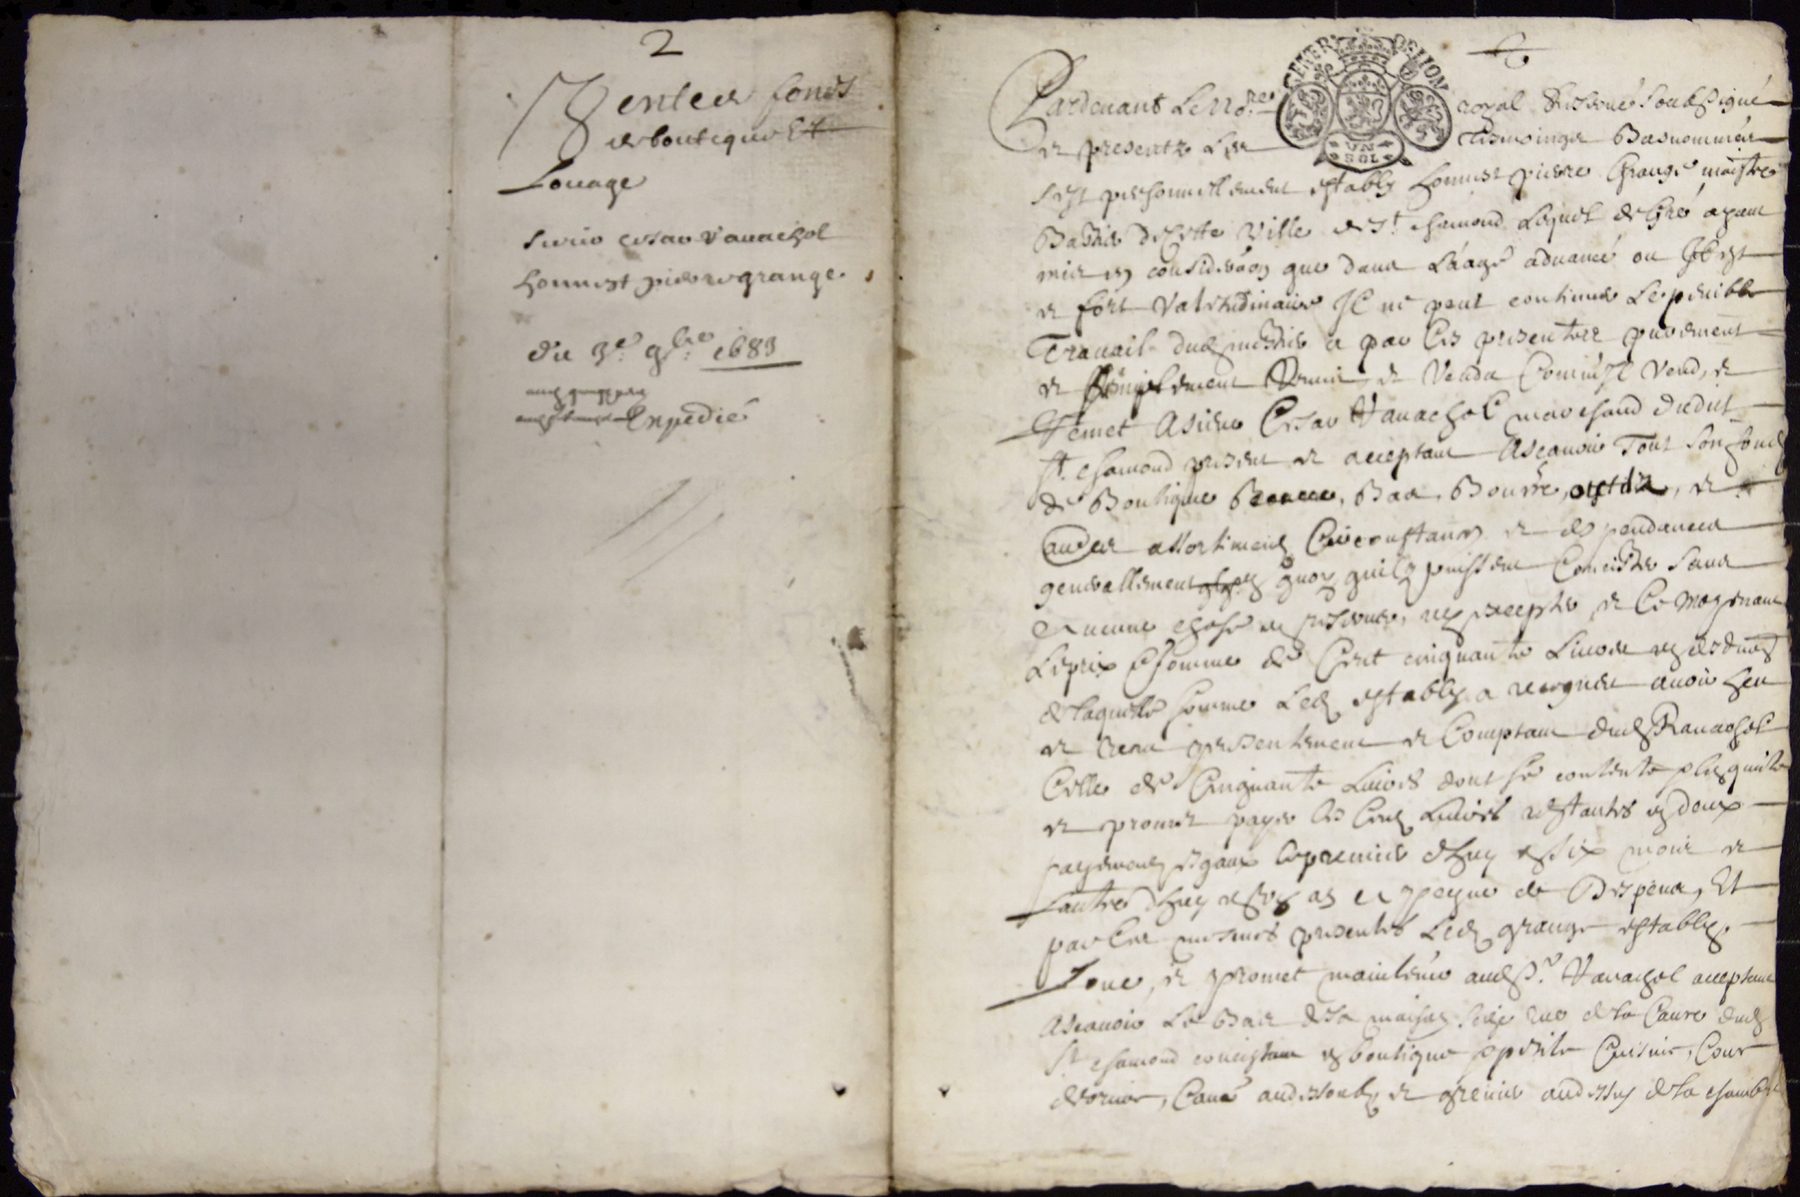 2
Vente de fonds
de boutique Et
Louage
Sieur cesar ravachol
honnest pierre grange
du 3e 9bre 1683
Expedié
GENER DE LION
VN
SOL
Pardevant Le No.re royal Reservé soubsigné
et presentz Les Tesmoings Basnommés
s'est personnellement estably honnest pierre Grange maistre
de cette Ville de St. chamond Lequel de Gré ayant
mis en consideraon que dans L'aagé advancé ou Il est
et fort Valetudinaire Il ne peut continuer Le penible
Travail dud mestier a par Ces presentes purement
et simplement Remis, et Vendu Comm'Il Vend, et
Remet A sieur Cesar Ravachol marchand dudit
St. chamond present et acceptant Asçavoir Tout son fond
de Boutique Bas, Bourre, et
autres assortiments Circonstances et despendances
generallement quoy qu'ilz puissent Concister sans
Aucune chose en reserver, ny excepter et Ce Moyenant
Le prix & somme de Cent cinquante Livres en desduon
de laquelle somme Led estably a recognu avoir heu
et receu presentement et Comptant dud Ravachol
Celle de Cinquante Livres dont se contente plus quitte
et promet payer les Cent Livres restantes en deux
payements esgaux le premier d'huy en six mois et
L'autre d'huy en un an a peyne de Despens, Et
par Les mesmes presentes Led grange estably
Loue, et promet maintenir aud Sr. Ravachol acceptant
Asçavoir Le Bas de sa maison size rue de la Caure dud
St chamond concistant en boutique petite Cuisine, Cour
derrier, Cave audessoubz et grenier audessus de la chambre